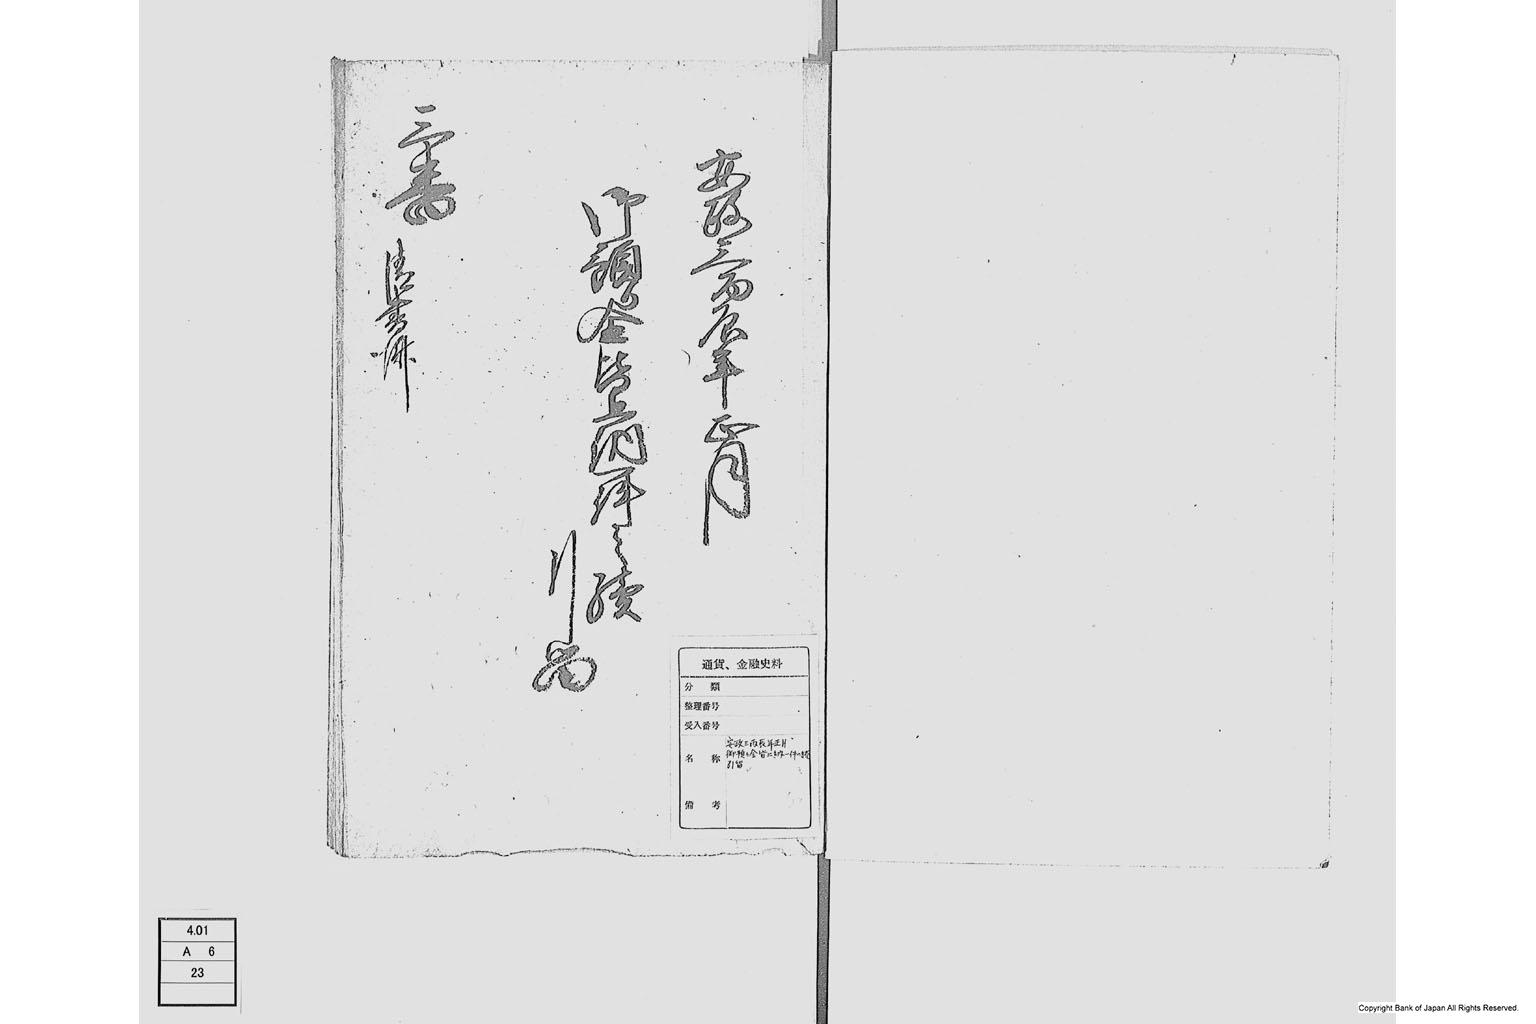 安政三丙辰年正月
御頼金皆上納一件之続
引留
三番
通貨、金融史料
分 類
整理番号
受入番号
名 称
安政三丙辰年正月
御頼金皆上納一件之続
引留
備 考
4.01
A 6
23
Copyright Bank of Japan All Rights Reserved.